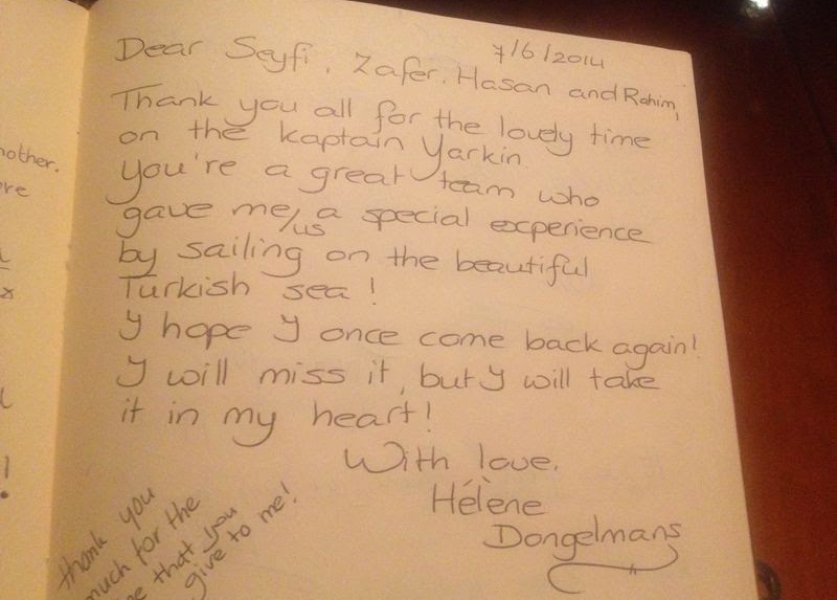 7/6/2014
Dear Seyfi, Zafer, Hasan and Rahim,
Thank you all for the lovely time
on the kaptain Yarkin.
you're a great team who
gave me/us a special experience
by sailing on the beautiful
Turkish sea!
I hope I once come back again!
I will miss it, but I will take
it in my heart!
With love,
Hélène
Dongelmans
thank you
much for the
that you
give to me!